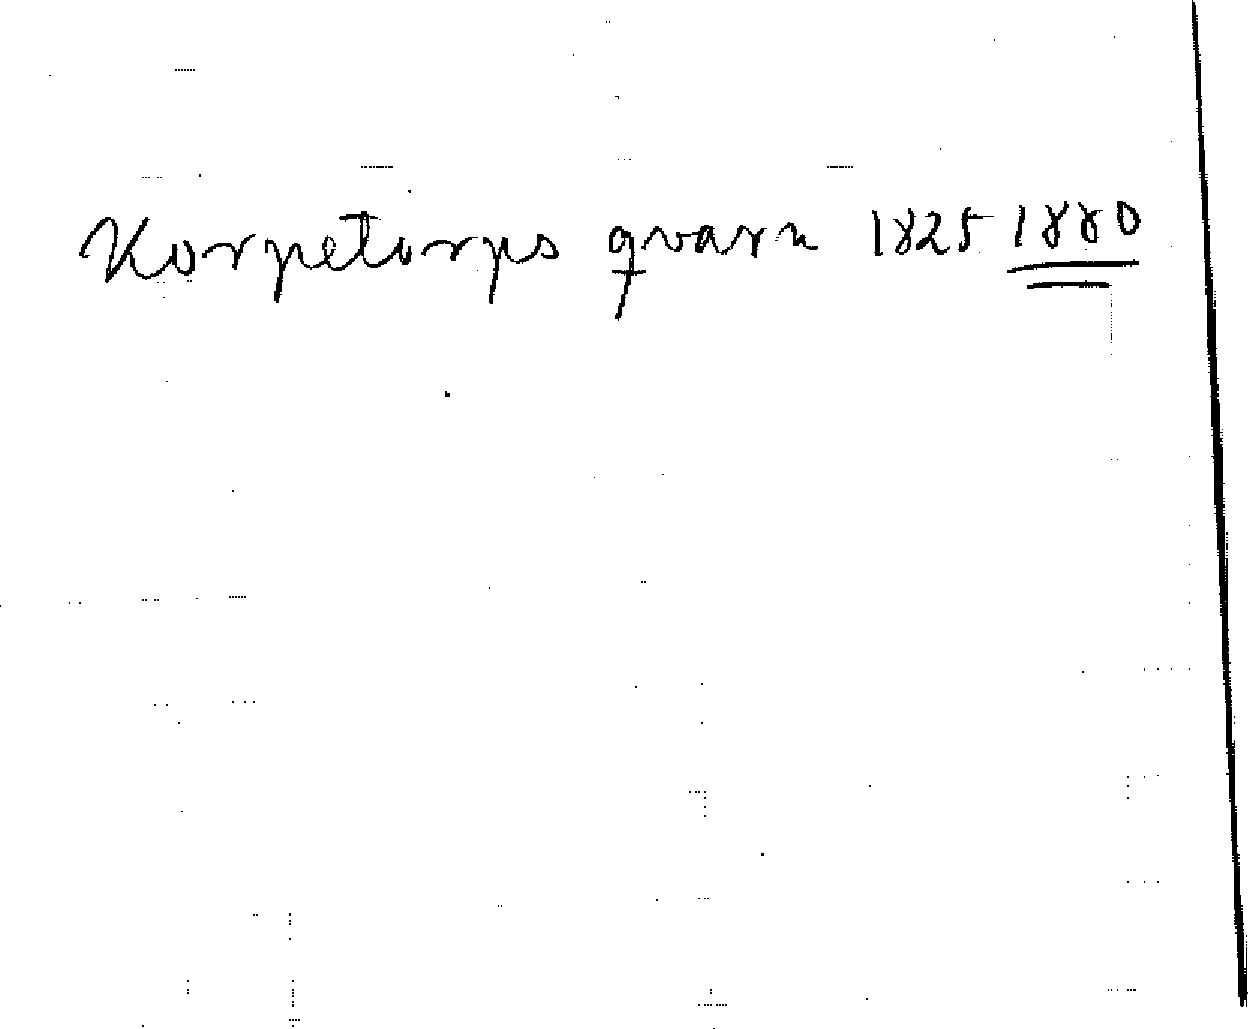 Korpetorps qvarn 1825 1880